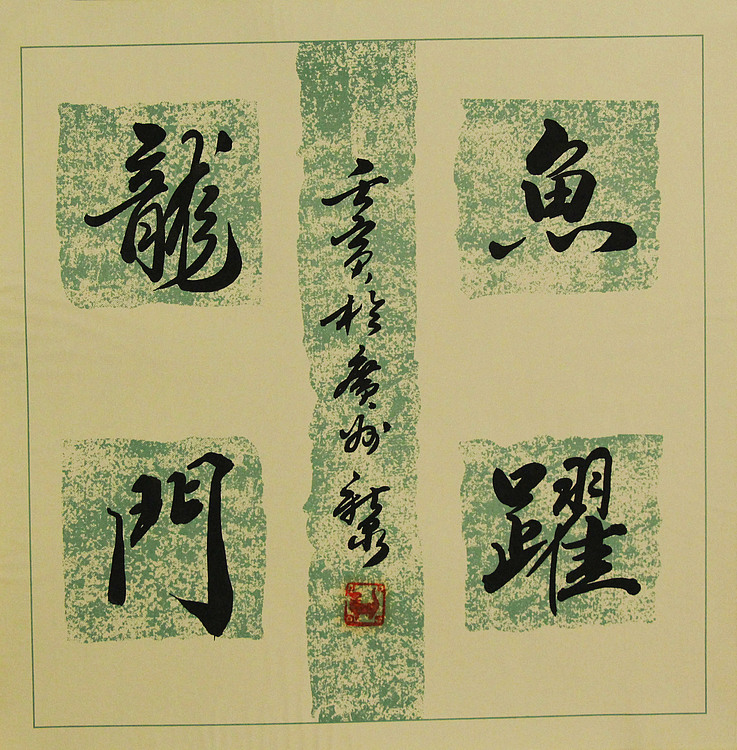 魚躍
龍門
寅於廣州